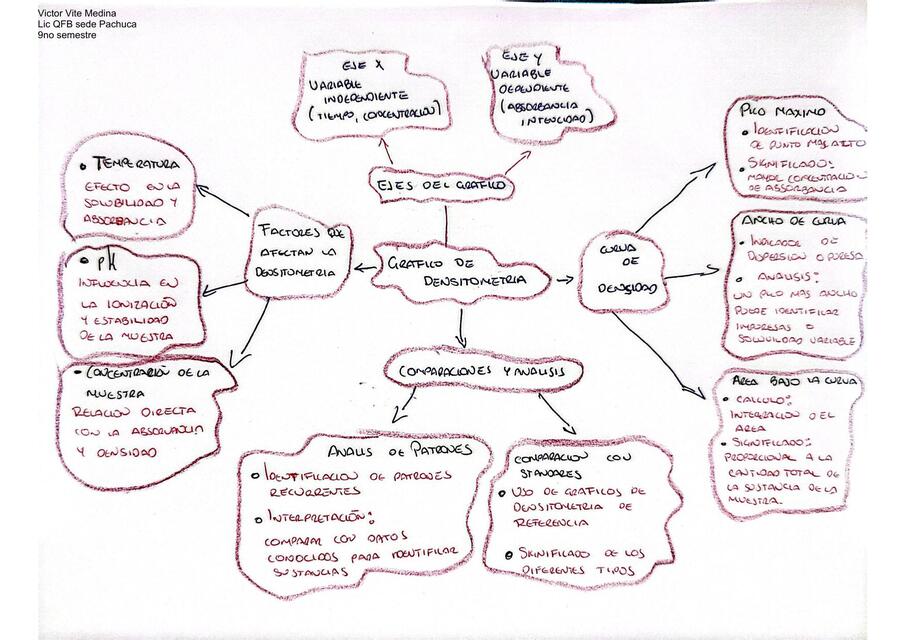 Victor Vite Medina
Lic QFB sede Pachuca
9no semestre
EJE X
VARIABLE
INDEPENDIENTE
(TIEMPO, CONCENTRACIÓN)
EJE Y
VARIABLE
DEPENDIENTE
(ABSORBANCIA
INTENCIDAD)
EJES DEL GRÁFICO
GRÁFICO DE
DENSITOMETRIA
FACTORES QUE
AFECTAN LA
DENSITOMETRIA
• TEMPERATURA
EFECTO EN LA
SOLUBILIDAD Y
ABSORBANCIA
• pH
INFLUENCIA EN
LA IONIZACIÓN
Y ESTABILIDAD
DE LA MUESTRA
• CONCENTRACIÓN DE LA
MUESTRA
RELACION DIRECTA
CON LA ABSORVANCIA
Y DENSIDAD
CURVA
DE
DENSIDAD
PICO MAXIMO
• IDENTIFICACION
DE PUNTO MAS ALTO
• SIGNIFICADO:
MAYOR CONCENTRACION
DE ABSORBANCIA
ANCHO DE CURVA
• INDICADOR DE
DISPERSION O PUREZA
• ANALISIS:
UN PICO MAS ANCHO
PUEDE IDENTIFICAR
IMPURESAS O
SOLUVILIDAD VARIABLE
AREA BAJO LA CURVA
• CALCULO:
INTEGRACION DEL
AREA
• SIGNIFICADO:
PROPORCIONAL A LA
CANTIDAD TOTAL DE
LA SUSTANCIA DE LA
MUESTRA.
COMPARACIONES Y ANALISIS
ANALIS DE PATRONES
• IDENTIFICACION DE PATRONES
RECURRENTES
• INTERPRETACIÓN:
COMPARAR CON DATOS
CONOCIDOS PARA IDENTIFICAR
SUSTANCIAS
COMPARACION CON
STANDARES
• USO DE GRÁFICOS DE
DENSITOMETRIA DE
REFERENCIA
• SKINIFICADO DE LOS
DIFERENTES TIPOS